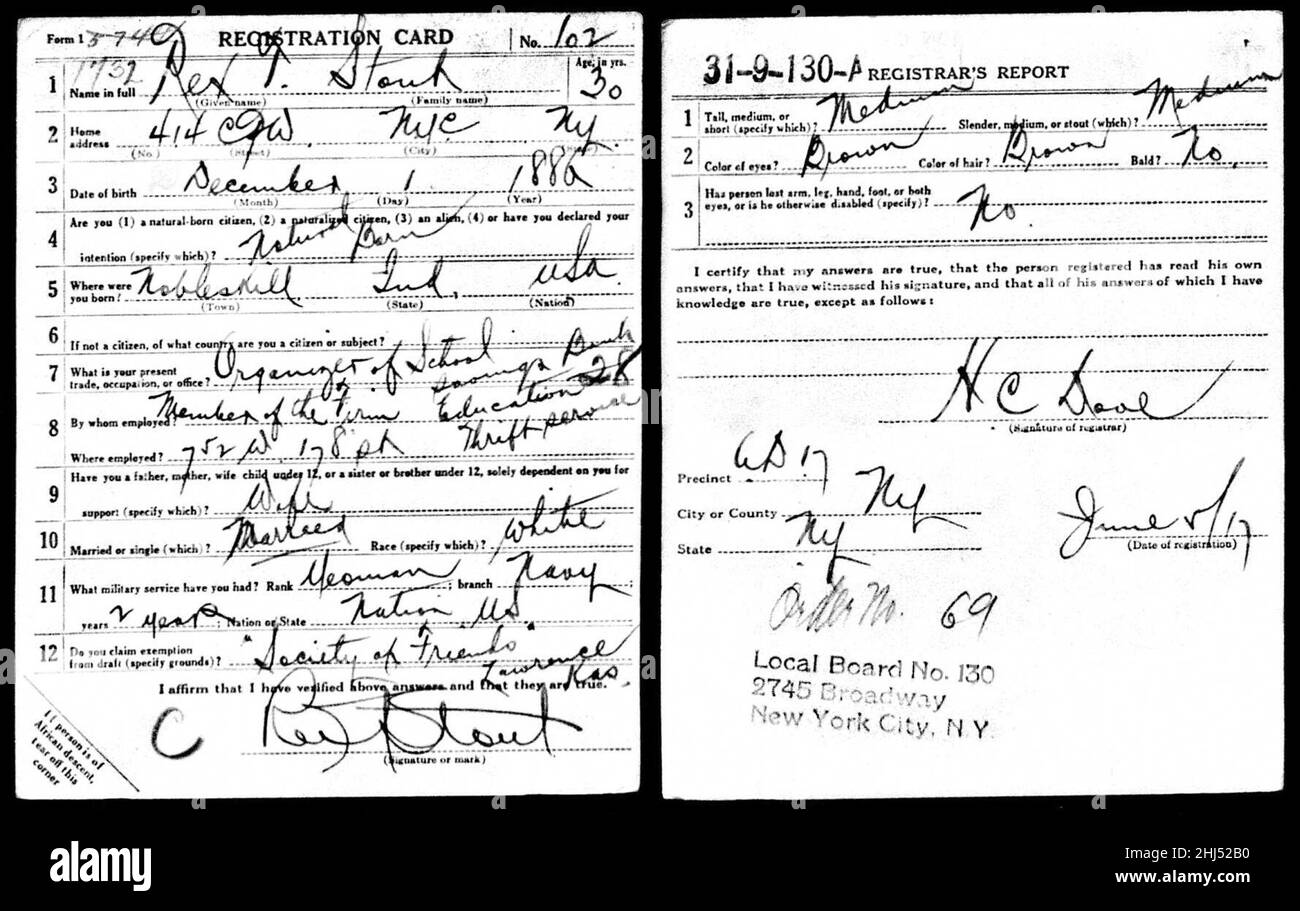 Form 1 5740 REGISTRATION CARD No. 102
1732
1 Name in full Rex T. Stout Age, in yrs. 30
(Given name) (Family name)
2 Home address 414 CPW. NYC NY.
(No.) (Street) (City) (State)
3 Date of birth December 1 1886
(Month) (Day) (Year)
4 Are you (1) a natural-born citizen, (2) a naturalized citizen, (3) an alien, (4) or have you declared your
intention (specify which)? Natural Born
5 Where were you born? Noblesvill Ind. USA.
(Town) (State) (Nation)
6 If not a citizen, of what country are you a citizen or subject?
7 What is your present trade, occupation, or office? Organizer of School Savings Bank 28
8 By whom employed? Member of the Firm Education
Thrift Service
Where employed? 752 W. 178 St
9 Have you a father, mother, wife child under 12, or a sister or brother under 12, solely dependent on you for
support (specify which)? Wife
10 Married or single (which)? Married Race (specify which)? White
11 What military service have you had? Rank Yeoman ; branch Navy ;
years 2 years ; Nation or State Nation U.S.
12 Do you claim exemption from draft (specify grounds)? "Society of Friends"
Lawrence Kas.
I affirm that I have verified above answers and that they are true.
C Rex T Stout
(Signature or mark)
If person is of
African descent,
tear off this
corner
31-9-130-A REGISTRAR'S REPORT
1 Tall, medium, or short (specify which)? Medium Slender, medium, or stout (which)? Medium
2 Color of eyes? Brown Color of hair? Brown Bald? No.
3 Has person lost arm, leg, hand, foot, or both
eyes, or is he otherwise disabled (specify)? No.
I certify that my answers are true, that the person registered has read his own
answers, that I have witnessed his signature, and that all of his answers of which I have
knowledge are true, except as follows:
H C Dove
(Signature of registrar)
Precinct AD 17
City or County NY
State NY
June 5/17
(Date of registration)
Order No. 69
Local Board No. 130
2745 Broadway
New York City, N.Y.
alamy
Image ID: 2HJ52B0
www.alamy.com